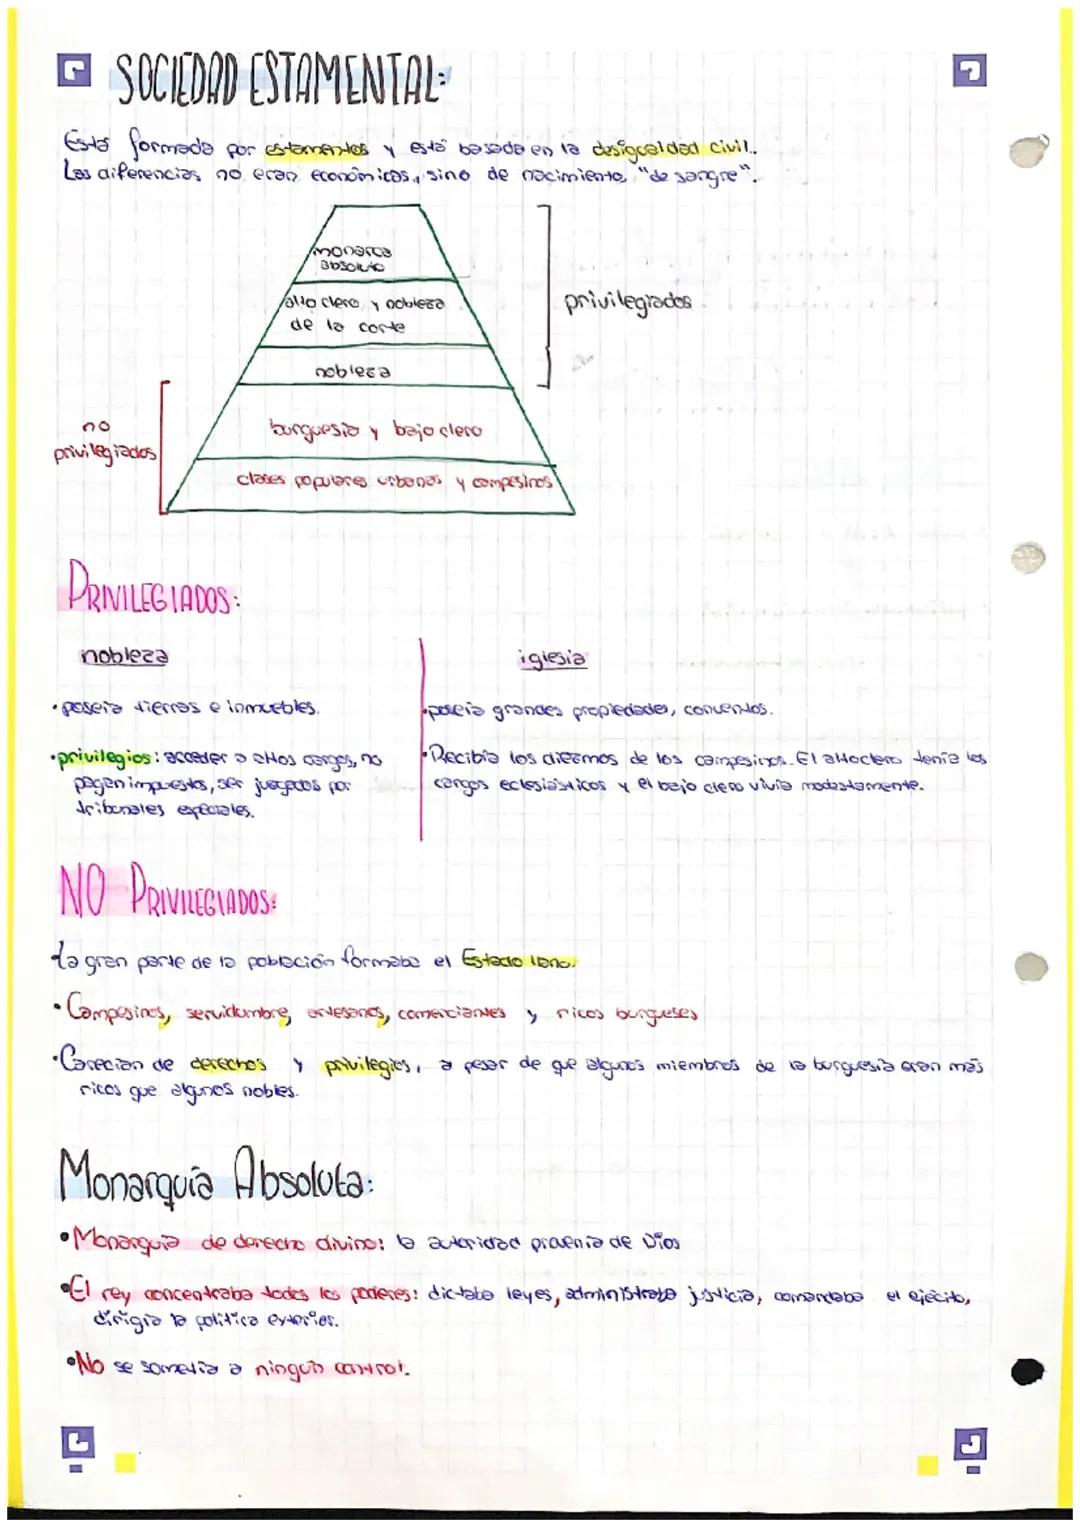 SOCIEDAD ESTAMENTAL:
Está formada por estamentos y está basada en la desigualdad civil.
Las diferencias no eran económicas, sino de nacimiento, "de sangre".
monarca
absoluto
alto clero y nobleza
de la corte
privilegiados
nobleza
no
privilegiados
burguesía y bajo clero
clases populares urbanas y campesinos
PRIVILEGIADOS:
nobleza
iglesia
·poseía tierras e inmuebles.
·poseía grandes propiedades, conventos.
·privilegios: acceder a altos cargos, no
pagan impuestos, ser juzgados por
tribunales especiales.
·Recibía los diezmos de los campesinos. El alto clero tenía los
cargos eclesiásticos y el bajo clero vivía modestamente.
NO PRIVILEGIADOS:
·La gran parte de la población formaba el Estado llano.
·Campesinos, servidumbre, artesanos, comerciantes y ricos burgueses
·Carecían de derechos y privilegios, a pesar de que algunos miembros de la burguesía eran más
ricos que algunos nobles.
Monarquía Absoluta:
·Monarquía de derecho divino: la autoridad provenía de Dios
·El rey concentraba todos los poderes: dictaba leyes, administraba justicia, comandaba el ejécito,
dirigía la política exterior.
·No se sometía a ningún control.